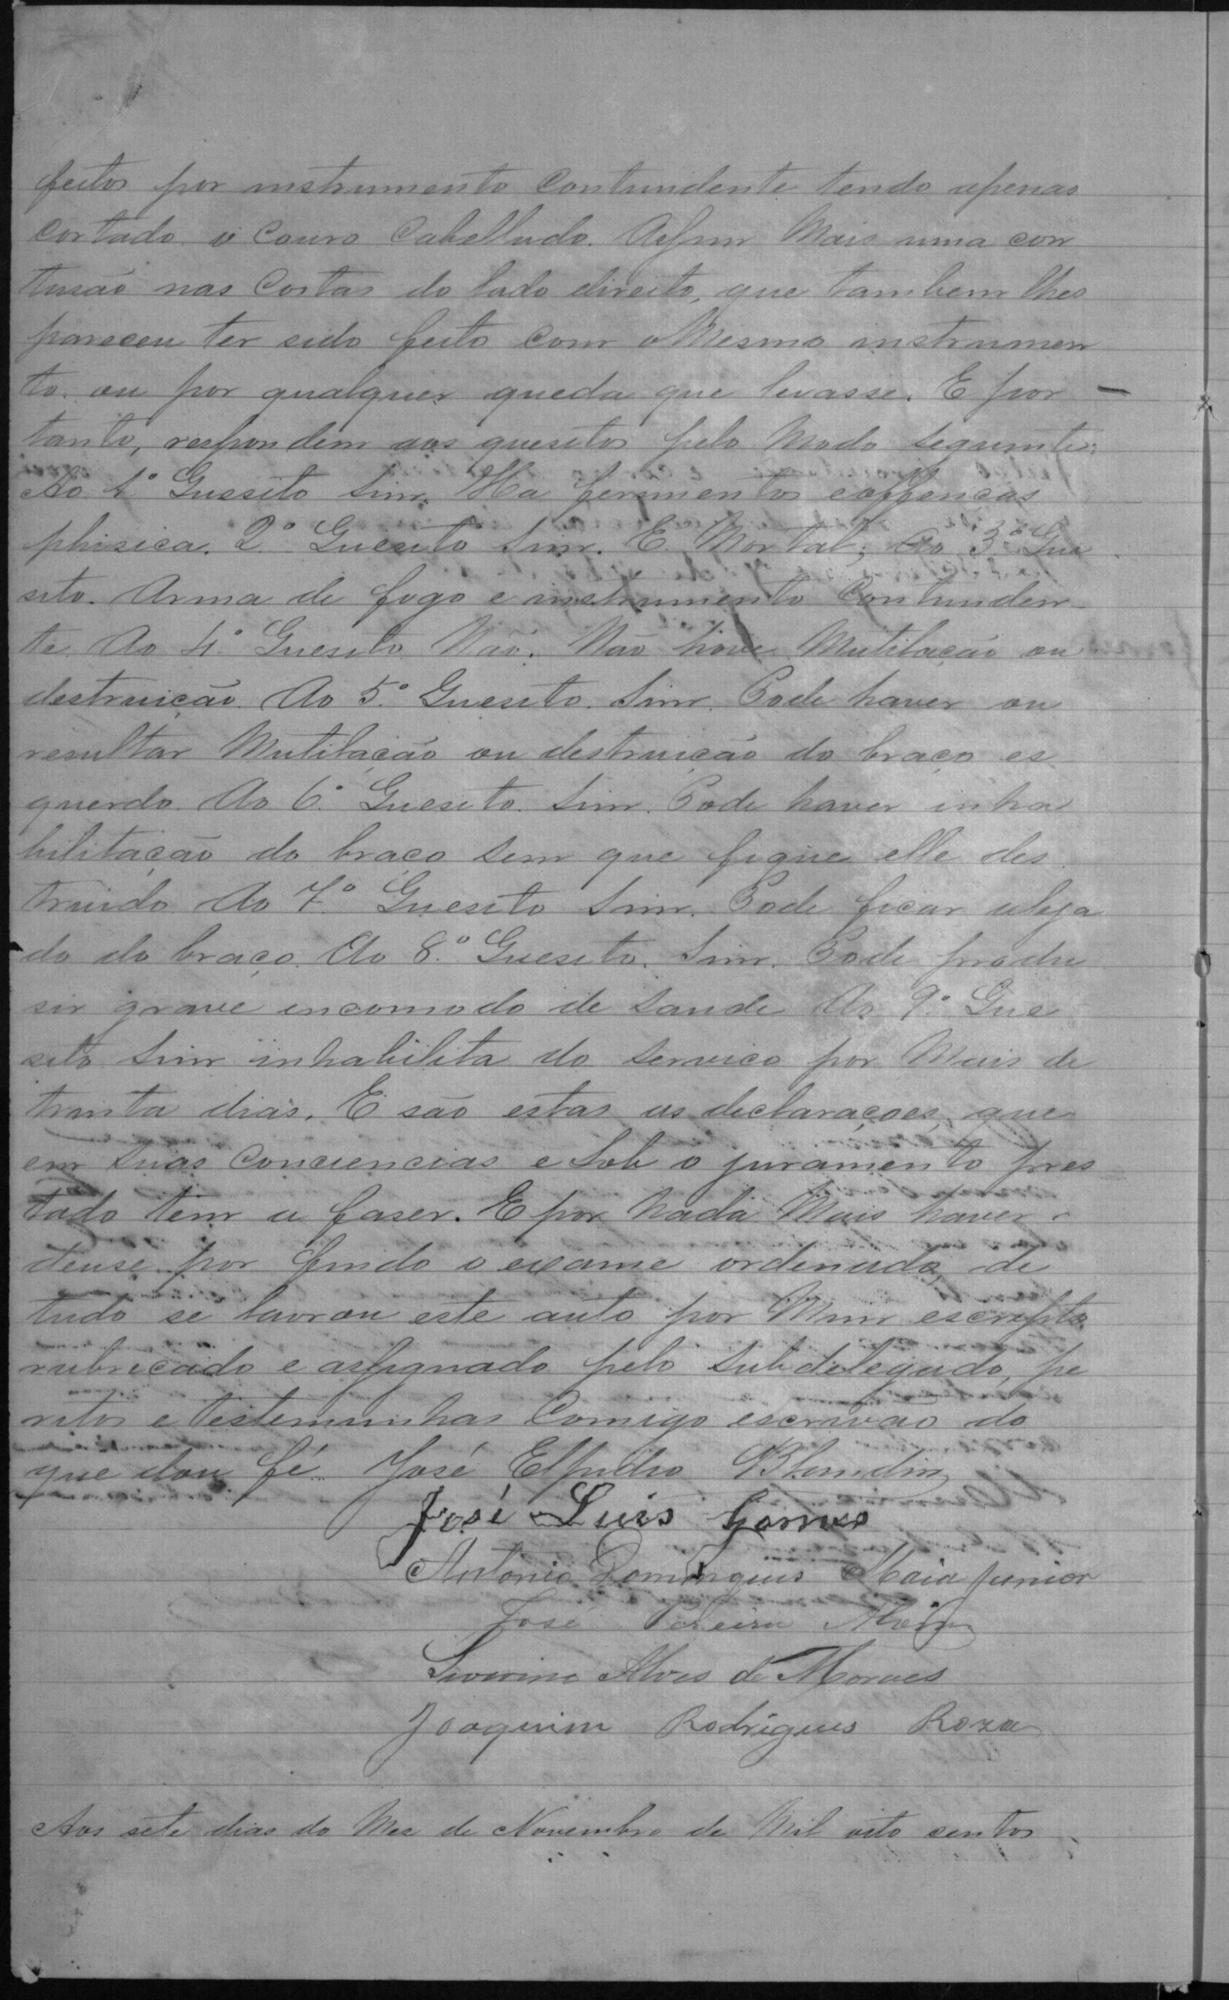 feitos por instrumento Contundente tendo apenas
cortado o Couro Cabelludo. Assim Mais uma con
tusão nas Costas do lado direito, que tambem lhes
pareceu ter sido feito com o Mesmo instrumen
to ou por qualquer queda que levasse. E por —
tanto, respondem aos quesitos pelo Modo seguinte:
Ao 1º Quesito Sim. Ha ferimentos e offencas
phisica. 2º Quesito Sim. E Mortal; Ao 3º Que
sito. Arma de fogo e instrumento Contunden
te Ao 4º Quesito Não. Não hove Mutilação ou
destruição Ao 5º Quesito. Sim. Pode haver ou
resultar Mutilação ou destruição do braço es
querdo. Ao 6º Quesito. Sim. Pode haver inha
bilitação do braço sem que fique elle des
truido Ao 7º Quesito Sim. Pode ficar aleja
do do braço. Ao 8º Quesito. Sim. Pode produ
sir grave encomodo de saude Ao 9º Que
sito Sim inhabilita do serviço por Mais de
trinta dias. E são estas as declarações, que
em suas Conciencias e Sob o juramento pres
tado tem a faser. E por Nada Mais haver
deuse por findo o exame ordenado, de
tudo se lavrou este auto por Mim escripto
rubricado e assignado pelo Subdelegado, pe
ritos e testemunhas Comigo escrivão do
que dou fé. José Elpidio Blandin
José Luis Gomes
Antonio Domingues Maia Junior
José Pereira
Severino Alves de Moraes
Joaquim Rodrigues Roza
Aos sete dias do Mez de Novembro de Mil oito centos